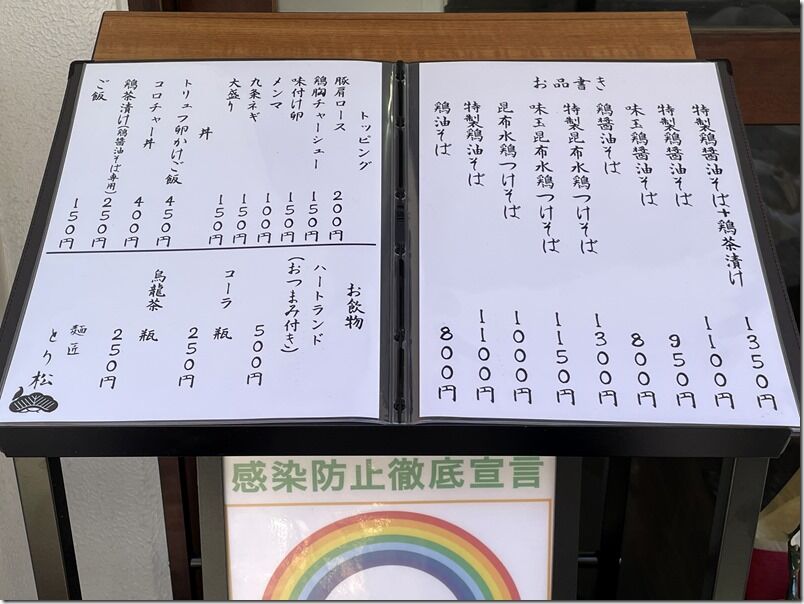 お品書き
特製鶏醤油そば+鶏茶漬け 1350円
特製鶏醤油そば 1100円
味玉鶏醤油そば 950円
鶏醤油そば 800円
特製昆布水鶏つけそば 1300円
味玉昆布水鶏つけそば 1150円
昆布水鶏つけそば 1000円
特製鶏油そば 1100円
鶏油そば 800円
トッピング
豚肩ロース 200円
鶏胸チャーシュー 150円
味付け卵 150円
メンマ 100円
九条ネギ 150円
大盛り 150円
丼
トリュフ卵かけご飯 450円
コロチャー丼 400円
鶏茶漬け(鶏醤油そば専用) 250円
ご飯 150円
お飲物
ハートランド
(おつまみ付き) 500円
コーラ 瓶 250円
烏龍茶 瓶 250円
麺匠
とり松
感染防止徹底宣言